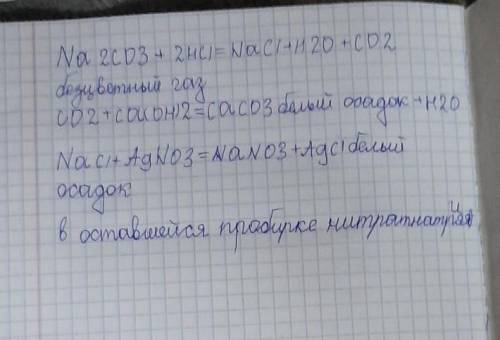 Na2CO3 + 2HCl = NaCl + H2O + CO2
безцветный газ
CO2 + Ca(OH)2 = CaCO3 белый осадок + H2O
NaCl + AgNO3 = NaNO3 + AgCl белый
осадок
в оставшейся пробирке нитрат натрия